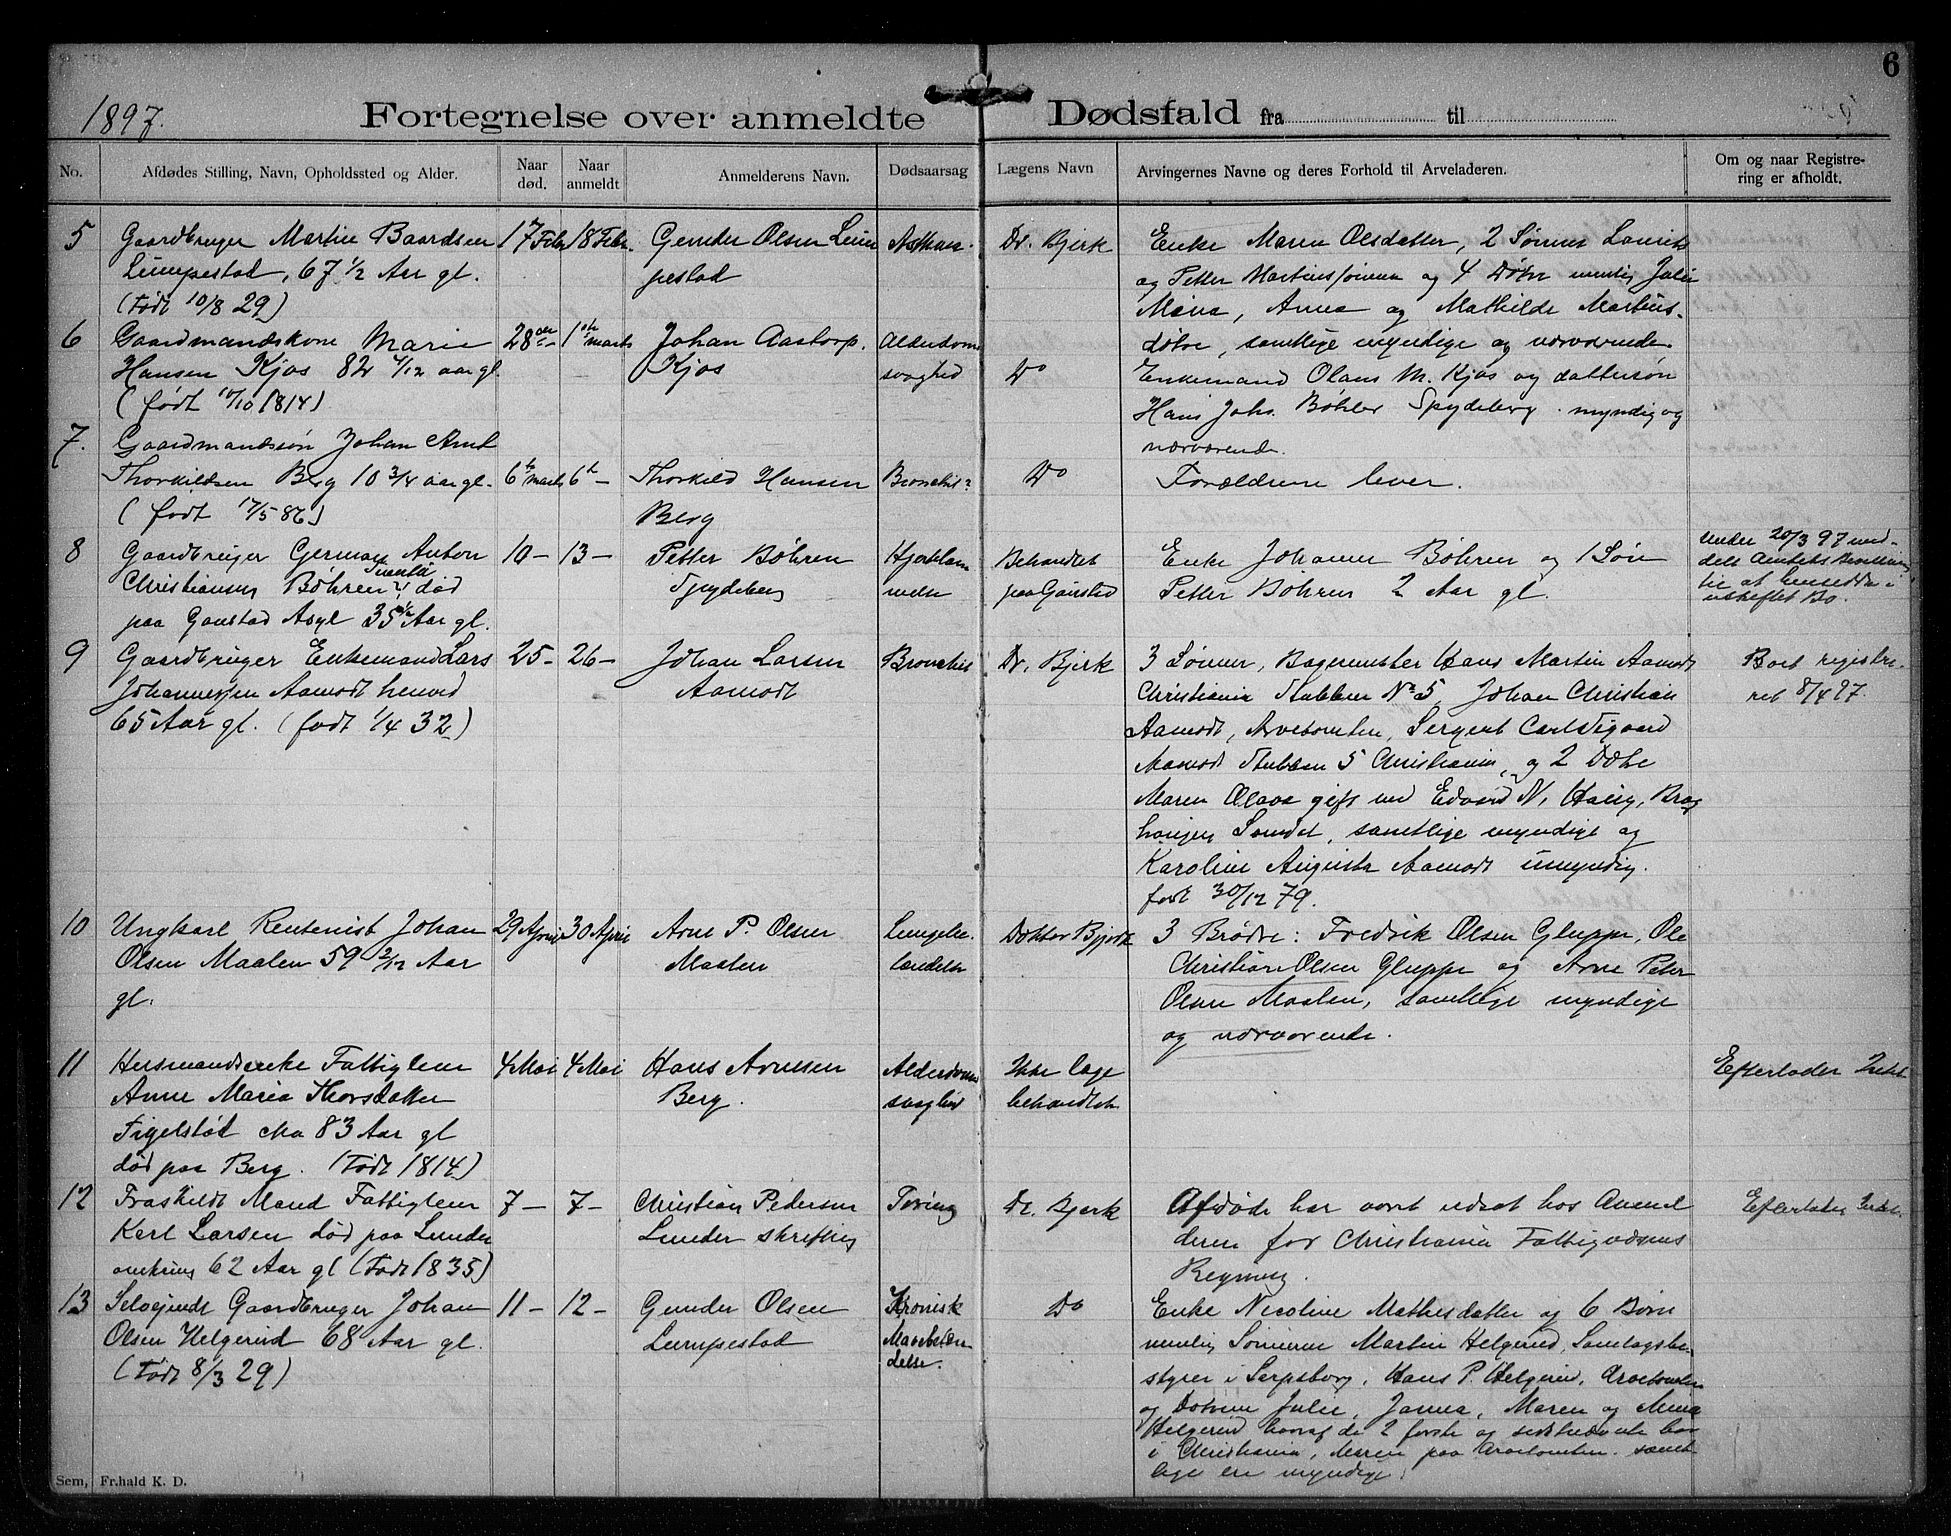 6
1897.
Fortegnelse over anmeldte Dødsfald fra til
No.
Afdødes Stilling, Navn, Opholdssted og Alder.
Naar død.
Naar anmeldt
Anmelderens Navn.
Dødsaarsag
Lægens Navn
Arvingernes Navne og deres Forhold til Arveladeren.
Om og naar Registre-
ring er afholdt.
5
Gaardbruger Martin Baardsen
Lumpestad, 67 1/2 Aar gl.
(Født 10/8 29)
17 Febr
18 Febr.
Gunder Olsen Lum
pestad
Dr. Bjerk
Enke Maren Olsdatter, 2 Sønner Laurits
og Petter Martinssønner og 4 Døtre nemlig Julie
Mina, Anna og Mathilde Martins-
døtre, samtlige myndige og nærværende
6
Gaardmandskone Marie
Hansen Kjos 82 4/12 aar gl.
(født 10/10 1814)
28de
1ste marts
Johan Aastorp.
Kjos
Alderdoms
svaghed
Do
Enkemand Olaus M. Kjos og dattersøn
Hans Johs. Bøhler Spydeberg. myndig og
nærværende.
7.
Gaardmandssøn Johan Arnt
Thorkildsen Berg 10 3/4 aar gl.
(født 17/5 86)
6te marts
6te —
Thorkild Hansen
Berg
Bronchit?
Do
Forældrene lever.
8
Gaardbruger German Anton
Christiansen Bøhren død
paa Gaustad Asyl 35 1/2 Aar gl.
10 —
13 —
Petter Bøhren
Spydeberg
Hjertelam
melse
Behandlet
paa Gaustad
Enke Johanne Bøhren og 1 Søn
Petter Bøhren 2 Aar gl.
Under 20/3 97 med-
delt Amtets Bevilling
til at hensidde i
uskiftet Bo.
9
Gaardbruger Enkemand Lars
Johannessen Aamodt henved
65 Aar gl. (født 1/4 32)
25 —
26 —
Johan Larsen
Aamodt
Bronchit
Dr. Bjerk
3 Sønner, Bagermester Hans Martin Aamodt
Christiania Stubben No 5, Johan Christian
Aamodt, Arvetomten, Sergent Carl Sigvard
Aamodt Stubben 5 Christiania, og 2 Døtre
Maren Olava gift med Edvard N. Haug, Brag
haugen Sandet, samtlige myndige og
Karoline Augusta Aamodt umyndig.
født 30/12 79.
Boet registre-
ret 8/4 97.
10
Ungkarl Rentenist Johan
Olsen Maalen 59 2/12 Aar
gl.
29 April
30 April
Arne P. Olsen
Maalen
Lungebe.
tændelse
Doktor Bjerk
3 Brødre: Fredrik Olsen Gluppe, Ole
Christian Olsen Gluppe og Arne Peter
Olsen Maalen, samtlige myndige
og nærværende.
11
Husmandsenke Fattiglem
Anne Maria Thorsdatter
Figelstød cka 83 Aar gl
død paa Berg. (Født 1814)
4 Mai
4 Mai
Hans Arnesen
Berg.
Alderdoms
svaghed
Ikke læge
behandlet
Efterlader Intet
12
Fraskildt Mand Fattiglem
Karl Larsen død paa Lunder
omkring 62 Aar gl (Født 1835)
7 —
7 —
Christian Pedersen
Lunder skriftlig
Tæring
Dr. Bjerk
Afdøde har været udsat hos Anmel
deren for Christiania Fattigvæsens
Regning.
Efterlader Intet.
13
Selveiende Gaardbruger Johan
Olsen Helgerud 68 Aar gl.
(Født 8/3 29)
11 —
12 —
Gunder Olsen
Lumpestad
Kronisk
Mavebetæn
delse.
Do
Enke Nicoline Mathisdatter og 6 Børn
nemlig Sønnerne Martin Helgerud, Samlagsbe-
styrer i Sarpsborg, Hans P. Helgerud, Arvetomten
og Døtrene Julie, Janna, Maren og Anna
Helgerud hvoraf de 2 første og sidstnævnte bor
i Christiania, Maren paa Arvetomten. samt
lige ere myndige.
Sem, Fr.hald K. D.